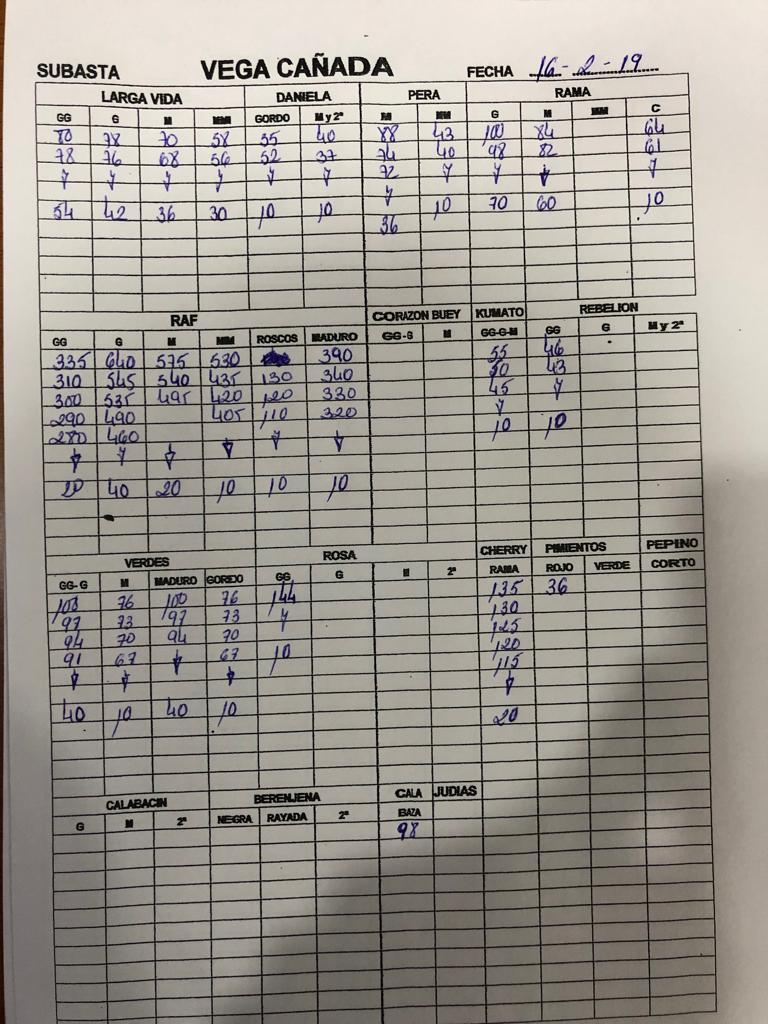 SUBASTA VEGA CAÑADA FECHA 16-2-19
LARGA VIDA DANIELA PERA RAMA
GG G M MM GORDO M y 2ª M MM G M MM C
80 78 70 58 55 40 88 43 100 84 64
78 76 68 56 52 37 74 40 98 82 61
72
54 42 36 30 10 10 10 70 60 10
36
RAF CORAZON BUEY KUMATO REBELION
GG G M MM ROSCOS MADURO GG-G M GG-G-M GG G M y 2ª
335 640 575 530 390 55 46
310 545 540 435 130 340 50 43
300 535 495 420 120 330 45
290 490 405 110 320
280 460 10 10
20 40 20 10 10 10
VERDES ROSA CHERRY PIMIENTOS PEPINO
GG-G M MADURO GORDO GG G M 2ª RAMA ROJO VERDE CORTO
100 76 100 76 144 135 36
97 73 97 73 130
94 70 94 70 125
91 67 67 10 120
115
40 10 40 10 20
CALABACIN BERENJENA CALA JUDIAS
G M 2ª NEGRA RAYADA 2ª BAZA
98